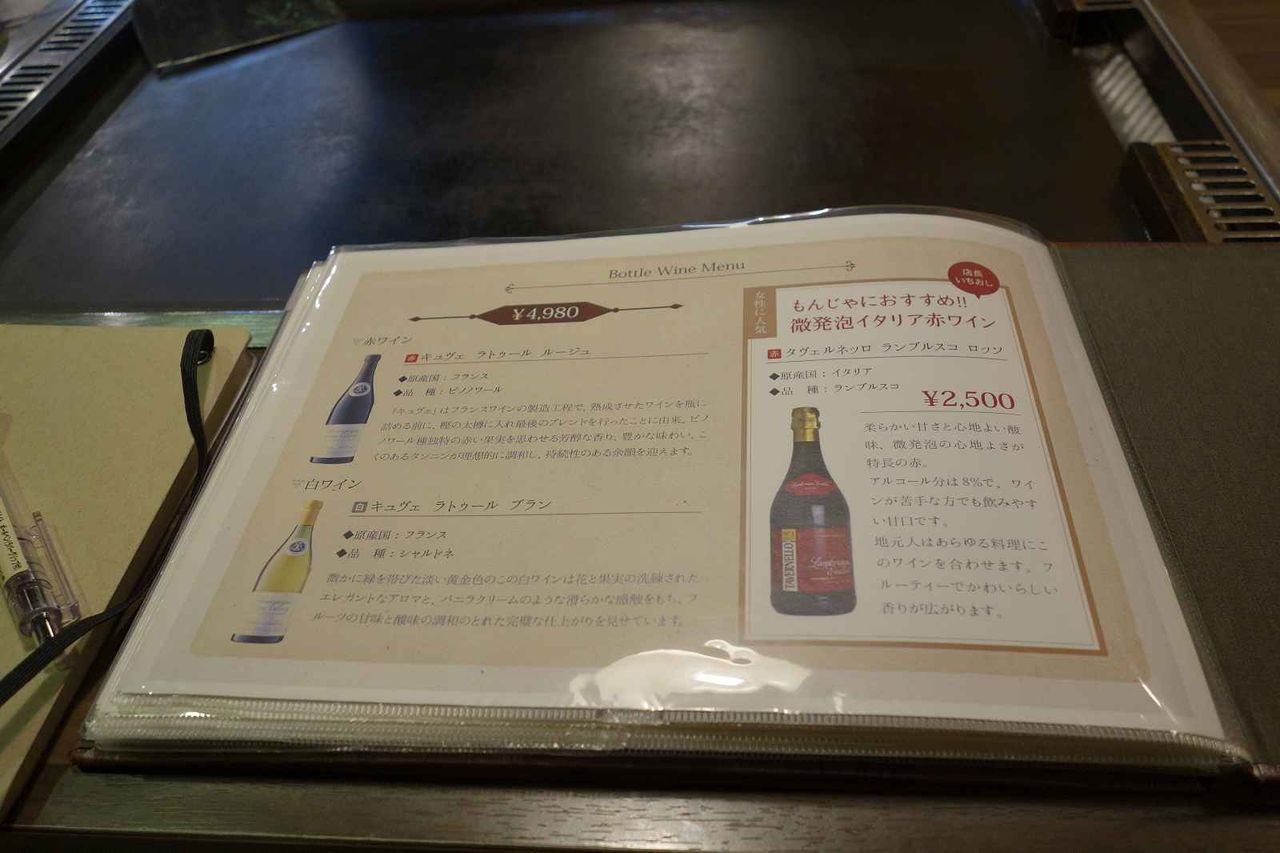 Bottle Wine Menu
¥4,980
赤ワイン
赤 キュヴェ ラトゥール ルージュ
◆原産国：フランス
◆品 種：ピノノワール
「キュヴェ」はフランスワインの製造工程で、熟成させたワインを瓶に
詰める前に、樫の太樽に入れ最後のブレンドを行ったことに由来。ピノ
ノワール種独特の赤い果実を思わせる芳醇な香り、豊かな味わい、こ
くのあるタンニンが理想的に調和し、持続性のある余韻を迎えます。
白ワイン
白 キュヴェ ラトゥール ブラン
◆原産国：フランス
◆品 種：シャルドネ
微かに緑を帯びた淡い黄金色のこの白ワインは花と果実の洗練された
エレガントなアロマと、バニラクリームのような滑らかな感触をもち、フ
ルーツの甘味と酸味の調和のとれた完璧な仕上がりを見せています。
店長
いちおし
女性に人気
もんじゃにおすすめ!!
微発泡イタリア赤ワイン
赤 タヴェルネッロ ランブルスコ ロッソ
◆原産国：イタリア
◆品 種：ランブルスコ
¥2,500
柔らかい甘さと心地よい酸
味、微発泡の心地よさが
特長の赤。
アルコール分は8%で、ワイ
ンが苦手な方でも飲みやす
い甘口です。
地元人はあらゆる料理にこ
のワインを合わせます。フ
ルーティーでかわいらしい
香りが広がります。
TAVERNELLO
Lambrusco